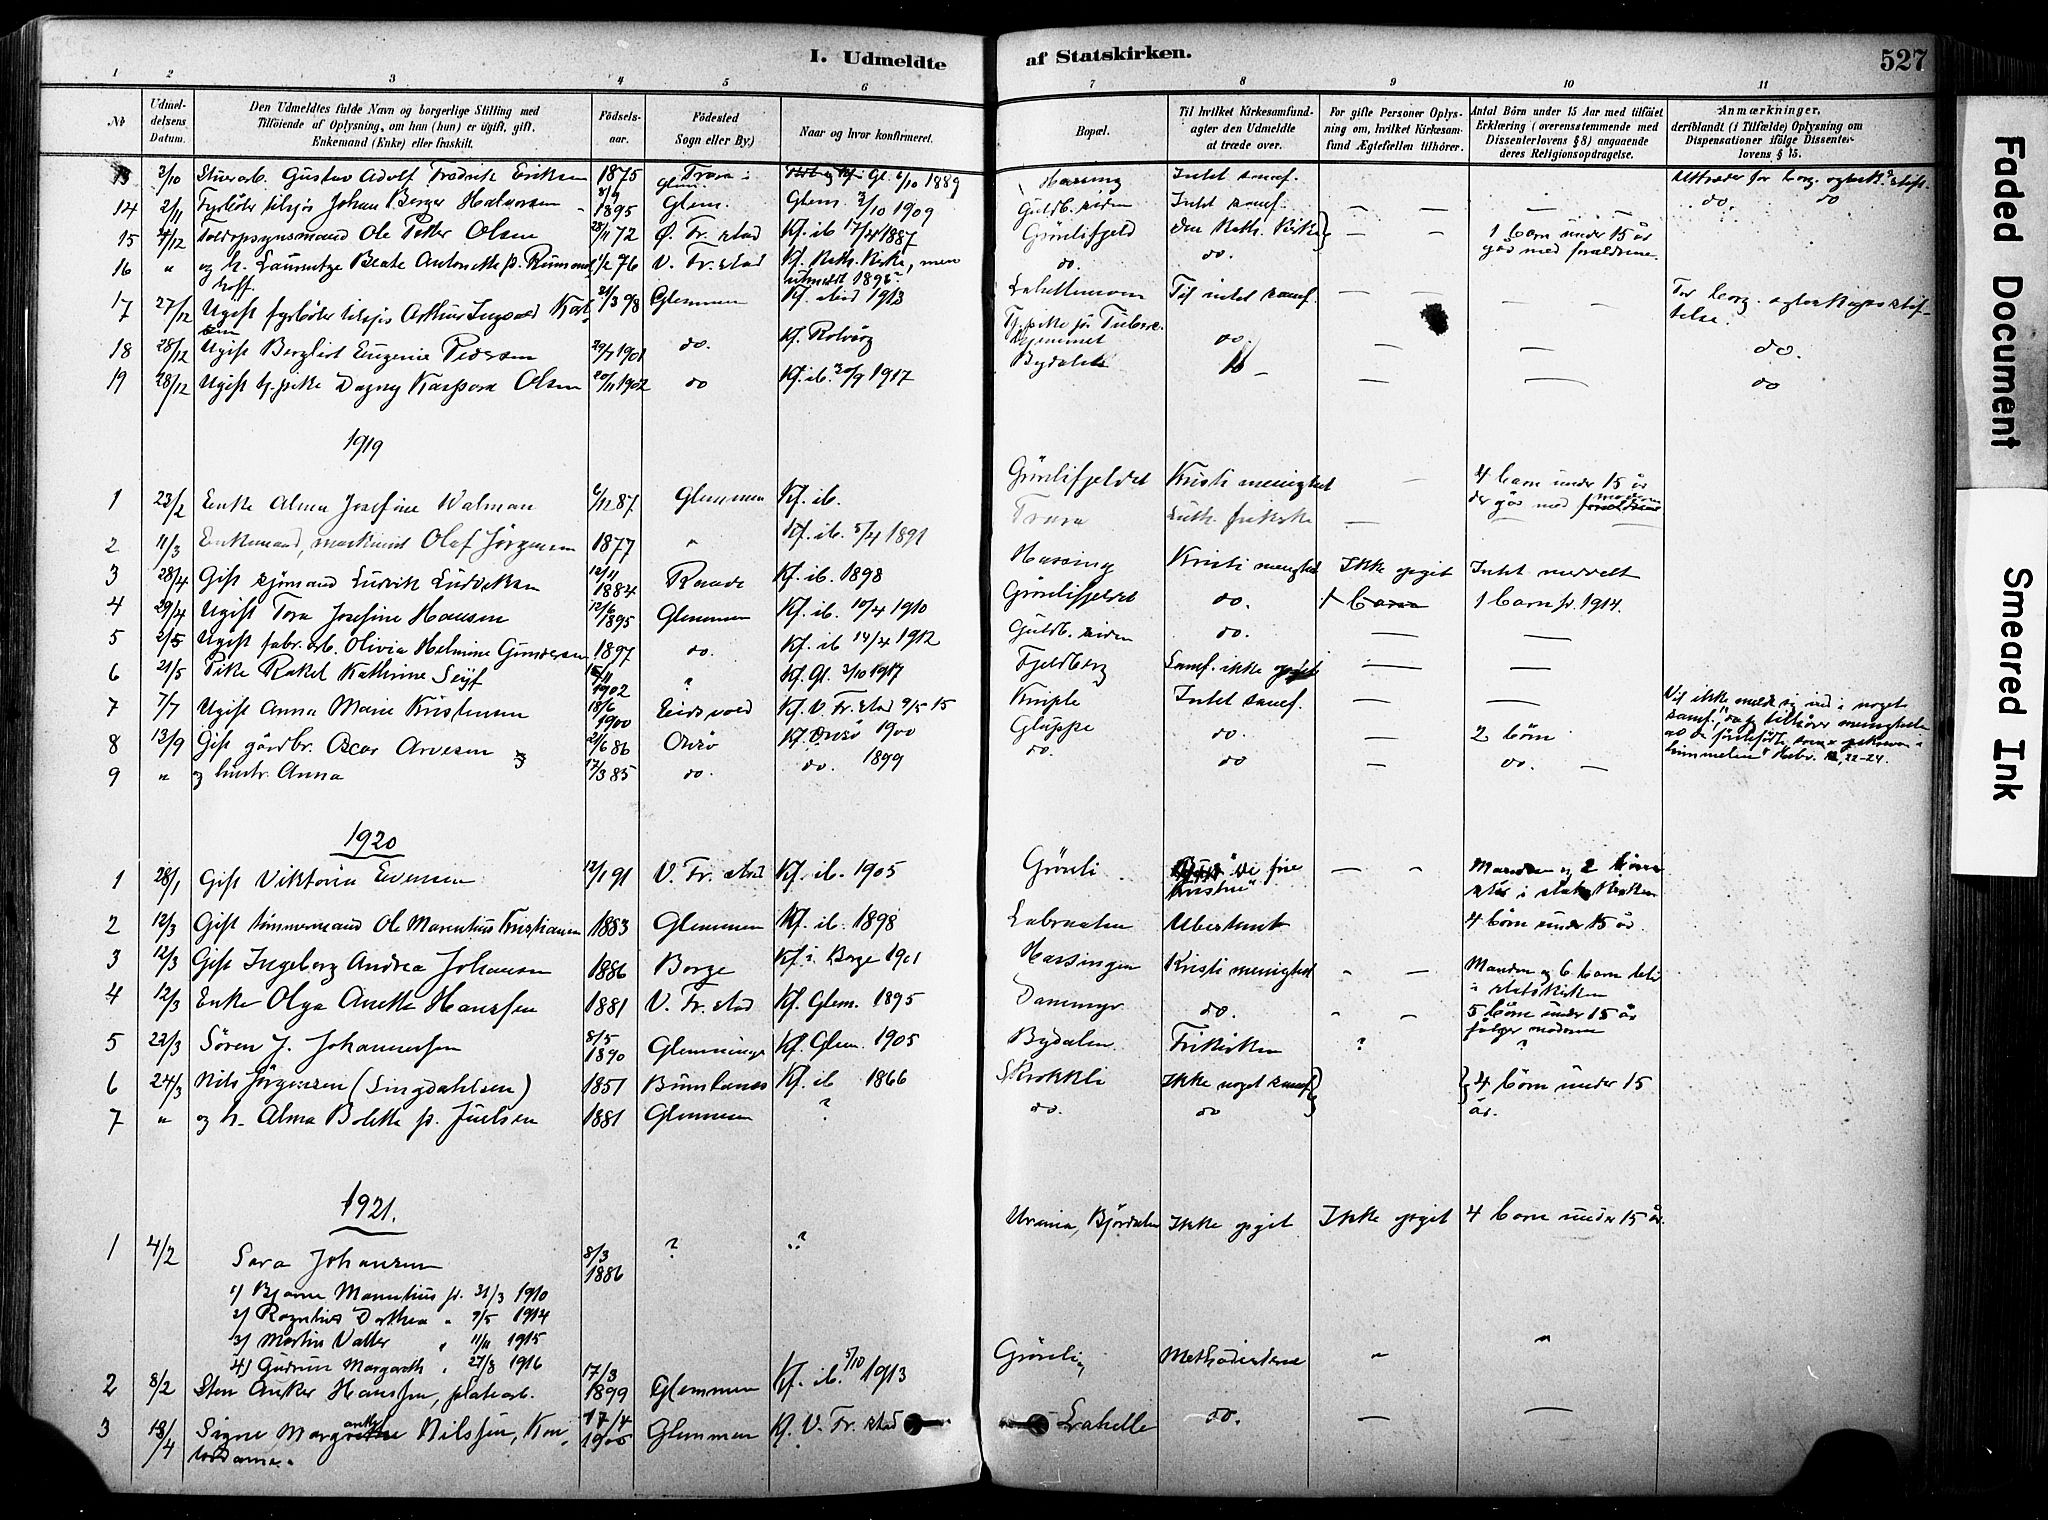 I. Udmeldte af Statskirken. 527
1 2 3 4 5 6 7 8 9 10 11
No
Udmeldelsens Datum.
Den Udmeldtes fulde Navn og borgerlige Stilling med Tilføiende af Oplysning, om han (hun) er ugift, gift, Enkemand (Enke) eller fraskilt.
Fødselsaar.
Fødested Sogn eller By.)
Naar og hvor konfirmeret.
Bopæl.
Til hvilket Kirkesamfund agter den Udmeldte at træde over.
For gifte Personer Oplysning om, hvilket Kirkesamfund Ægtefællen tilhører.
Antal Börn under 15 Aar med tilføiet Erklæring (overensstemmende med Dissenterlovens § 8) angaaende deres Religionsopdragelse.
Anmærkninger, deriblandt (i Tilfælde) Oplysning om Dispensationer ifølge Dissenterlovens § 15.
13 2/10 Gustav Adolf Fredrik Eriksen 1875 Glem. Gl. 6/10 1889 Hassing Intet samf.
14 2/11 Fyrböter tilsjös Johan Berger Halvorsen 1895 Glem. Glem. 3/10 1909 Guldb. siden Intet samf. — — — do. do
15 4/12 Toldopsynsmand Ole Petter Olsen 28/11 72 Ø. Fr.stad Kf. ib 17/4 1887 Grönlifjeld den Kath. Kirke — — 1 barn under 15 år går med foreldrene.
16 " og h. Beate Antonette f. 76 V. Fr.stad Kf. Kath. Kirke, men utmeldt 1895 do. do.
17 27/12 Ugift fyrböter tilsjös Arthur Ingvald 21/3 98 Glemmen Kf. ibid 1913 Til intet samf. — — —
18 28/12 Ugift Bergliot Eugenie Pedersen 29/7 1901 do. Kf. Rolvsög do. — — do.
19 28/12 Ugift tj. pike Dagny Kaspara Olsen 20/11 1902 do Kf. ib. 30/9 1917 Bydalen — — — do
1919
1 23/2 Enke Alma Josefine Walman 6/12 87 Glemmen Kf. ib. Grönlifjeldet Kristi menighed — 4 barn under 15 år der går med moderen
2 11/3 Enkemand, maskinist Olaf Jörgensen 1877 " Kf. ib. 5/4 1891 Trara Luth. frikirke — —
3 28/4 Gift sjömand Ludvik Ludviksen 12/11 1884 Raade Kf. ib. 1898 Hassing Kristi menighed Ikke opgit Intet meddelt
4 29/4 Ugift Tora Josefine Hansen 12/6 1895 Glemmen Kf. ib. 10/4 1910 Grönlifjeldet do. 1 barn 1 barn f. 1914.
5 2/5 Ugift fabr.arb. Olivia Helmine Gundersen 1897 do. Kf. ib 14/4 1912 Guldb. siden do. — —
6 21/5 Pike Rakel Kathrine Seyf 1902 ? Kf. Gl. 3/10 1917 Fjeldberg Samf. ikke opgit — —
7 7/7 Ugift Anna Marie Kristensen 18/6 1900 Eidsvold Kf. V. Fr.stad 9/5 15 Kniple Intet samf. — —
8 13/9 Gift gårdbr. Oscar Arvesen 21/6 86 Onsö Kf. Onsö 1900 Gluppe do. — 2 börn
9 " og hustr. Anna 17/3 85 do. do. 1899 do. do — do. —
Vil ikke melde sig ind i noget samf., da tilhörer menigheden av de förstefödte som er opskrevne i himmelen" Hebr. 12, 22-24.
1920
1 28/1 Gift Viktoria Evensen 12/1 91 V. Fr.stad Kf. ib. 1905 Grönli "De frie Kristne" — — Manden og 2 börn står i statskirken
2 12/3 Gift tömmermand Ole Marentius Kristiansen 1883 Glemmen Kf. ib. 1898 Labraaten Ubestemt 4 börn under 15 år.
3 12/3 Gift Ingeborg Andrea Johansen 1886 Borge Kf. i Borge 1901 Hassingen Kristi menighed — — Manden og 6 barn i statskirken
4 12/3 Enke Olga Anette Hanssen 1881 V. Fr.stad Kf. Glem. 1895 Dammyr do. — — 5 börn under 15 år fölger moderen
5 22/3 Sören J. Johannessen 8/5 1890 Glemminge Kf. Glem. 1905 Bydalen Frikirken ? ?
6 24/3 Nils Jörgensen (Lingdahlsen) 1851 Bumlanes Kf. ib 1866 Skrokkli Ikke noget samf. 4 börn under 15 år.
7 " og h. Alma Bolette f. Juelsen 1881 Glemmen ? do. do
1921.
1 4/2 Sara Johansen 8/3 1886 ? ? Urania, Björdalen Ikke opgit Ikke opgit 4 barn under 15 år.
1) Bjarne Marentius f. 31/3 1910
2) Dorthea " 9/5 1914
3) Martin Valter " 11/11 1915
4) Gudrun Margareth " 27/8 1916
2 8/2 Sten Anker Hanssen, platearb. 17/3 1899 Glemmen Kf. ib. 5/10 1913 Grönli Methodisterne " "
3 18/4 Signe Nilssen, Kontordame. 17/4 1905 Glemmen Kf. V. Fr.stad Lahelle do. — —
Faded Document
Smeared Ink